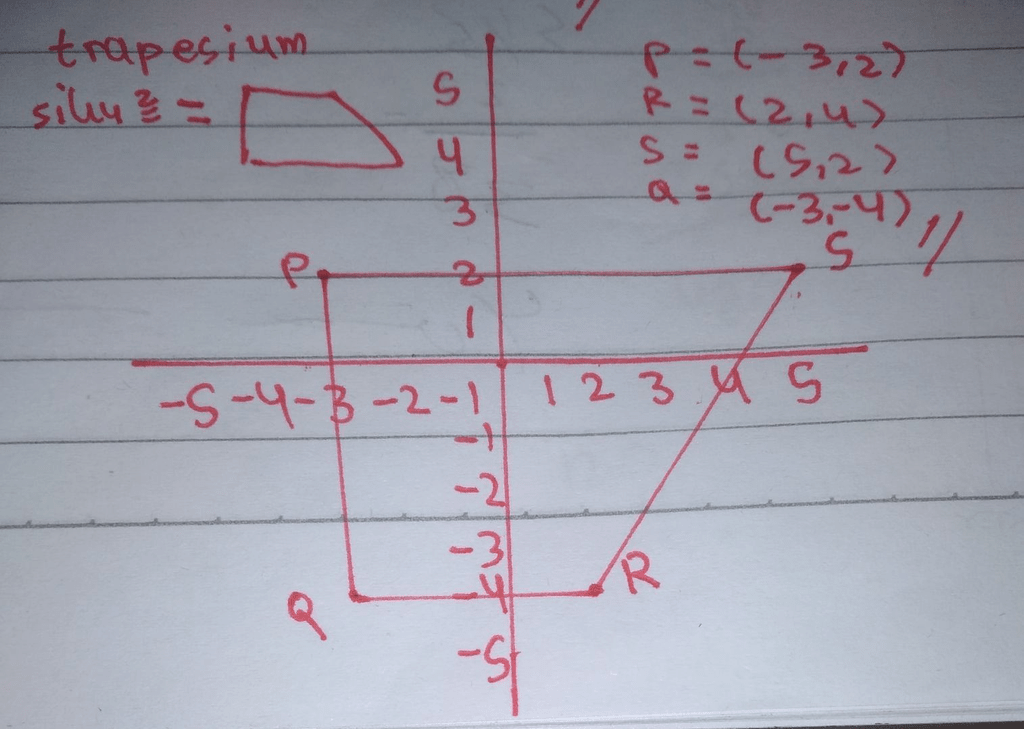 trapesium
siku² =
P = (-3,2)
R = (2,4)
S = (5,2)
Q = (-3,-4) //
5
4
3
P 2 S
1
-5 -4 -3 -2 -1 1 2 3 4 5
-1
-2
-3
Q -4 R
-5